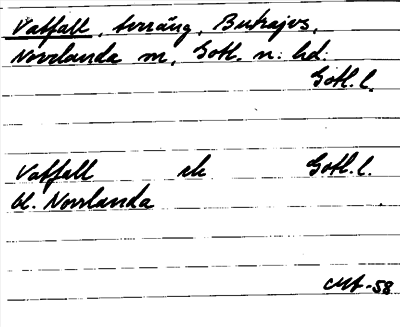 Vatfall, terräng, Butrajvs,
Norrlanda sn, Gotl. n. hd.
Gotl. l.
Vatfall
Gotl. l.
bl. Norrlanda
-58